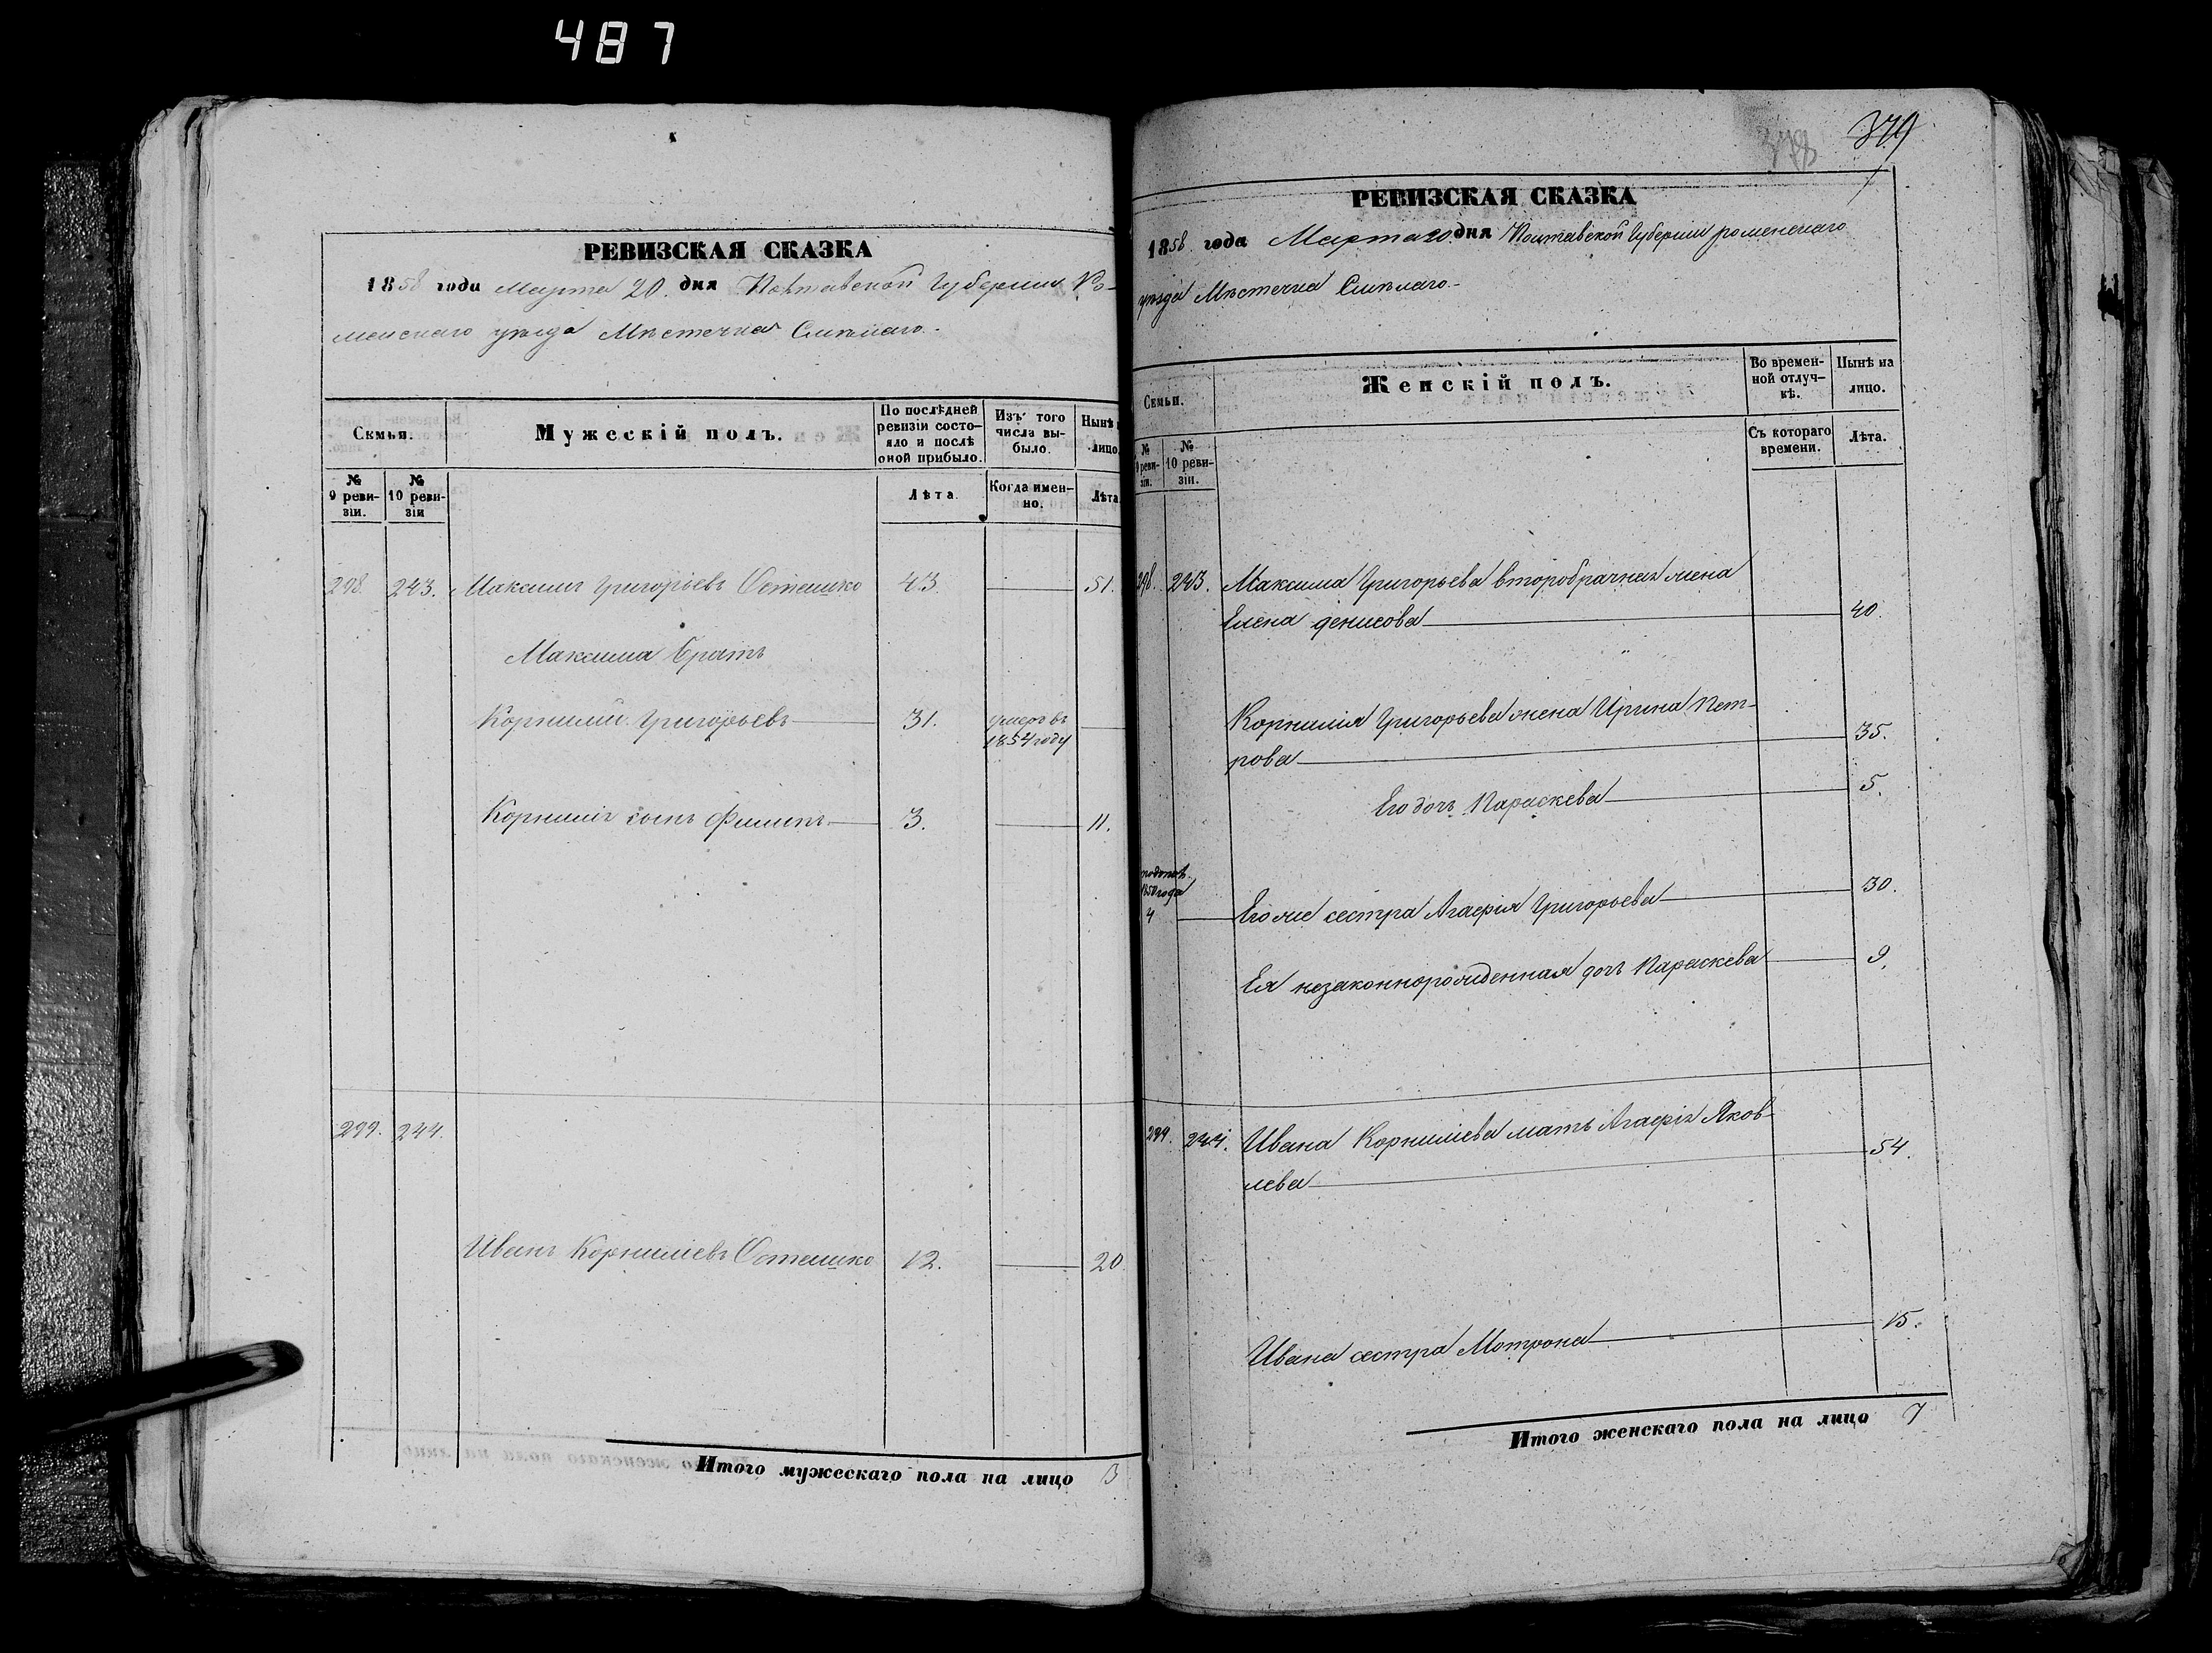 487
РЕВИЗСКАЯ СКАЗКА
1858 года Марта 20. дня Полтавской Губернии Ро-
менскаго уѣзда Мѣстечка Смѣлаго.
Семьи.
Мужескій полъ.
По послѣдней
ревизіи состо-
яло и послѣ
оной прибыло.
Изъ того
числа вы-
было.
Нынѣ
лицо.
№
9 реви-
зіи.
№
10 реви-
зіи
Лѣта.
Когда имен-
но.
Лѣта
298. 243. Максимъ Григорьевъ Осташко 43. 51.
Максима братъ
Корнилій Григорьевъ 31. умеръ въ
1854 году
Корнилія сынъ Филипъ 3. 11.
299. 244.
Иванъ Корниліевъ Осташко 12. 20.
Итого мужескаго пола на лицо 3
378 379
РЕВИЗСКАЯ СКАЗКА
1858 года Марта 20 дня Полтавской Губерніи роменскаго
уѣзда Мѣстечка Смѣлаго.
Семьи.
Женскій полъ.
Во времен-
ной отлуч-
кѣ.
Нынѣ на
лицо.
№
9 реви-
зіи.
№
10 реви-
зіи.
Съ котораго
времени.
Лѣта.
298. 243. Максима Григорьева второбрачная жена
Елена денисова 40.
Корнилія Григорьева жена Ирина Пет-
рова 35.
Его дочь Параскева 5.
1850 года
4 Его же сестра Агафія Григорьева 30.
Ея незаконнорожденная дочь Параскева 9.
299. 244. Ивана Корниліева мать Агафія Яков-
лева 54.
Ивана сестра Мотрона 15.
Итого женскаго пола на лицо 7